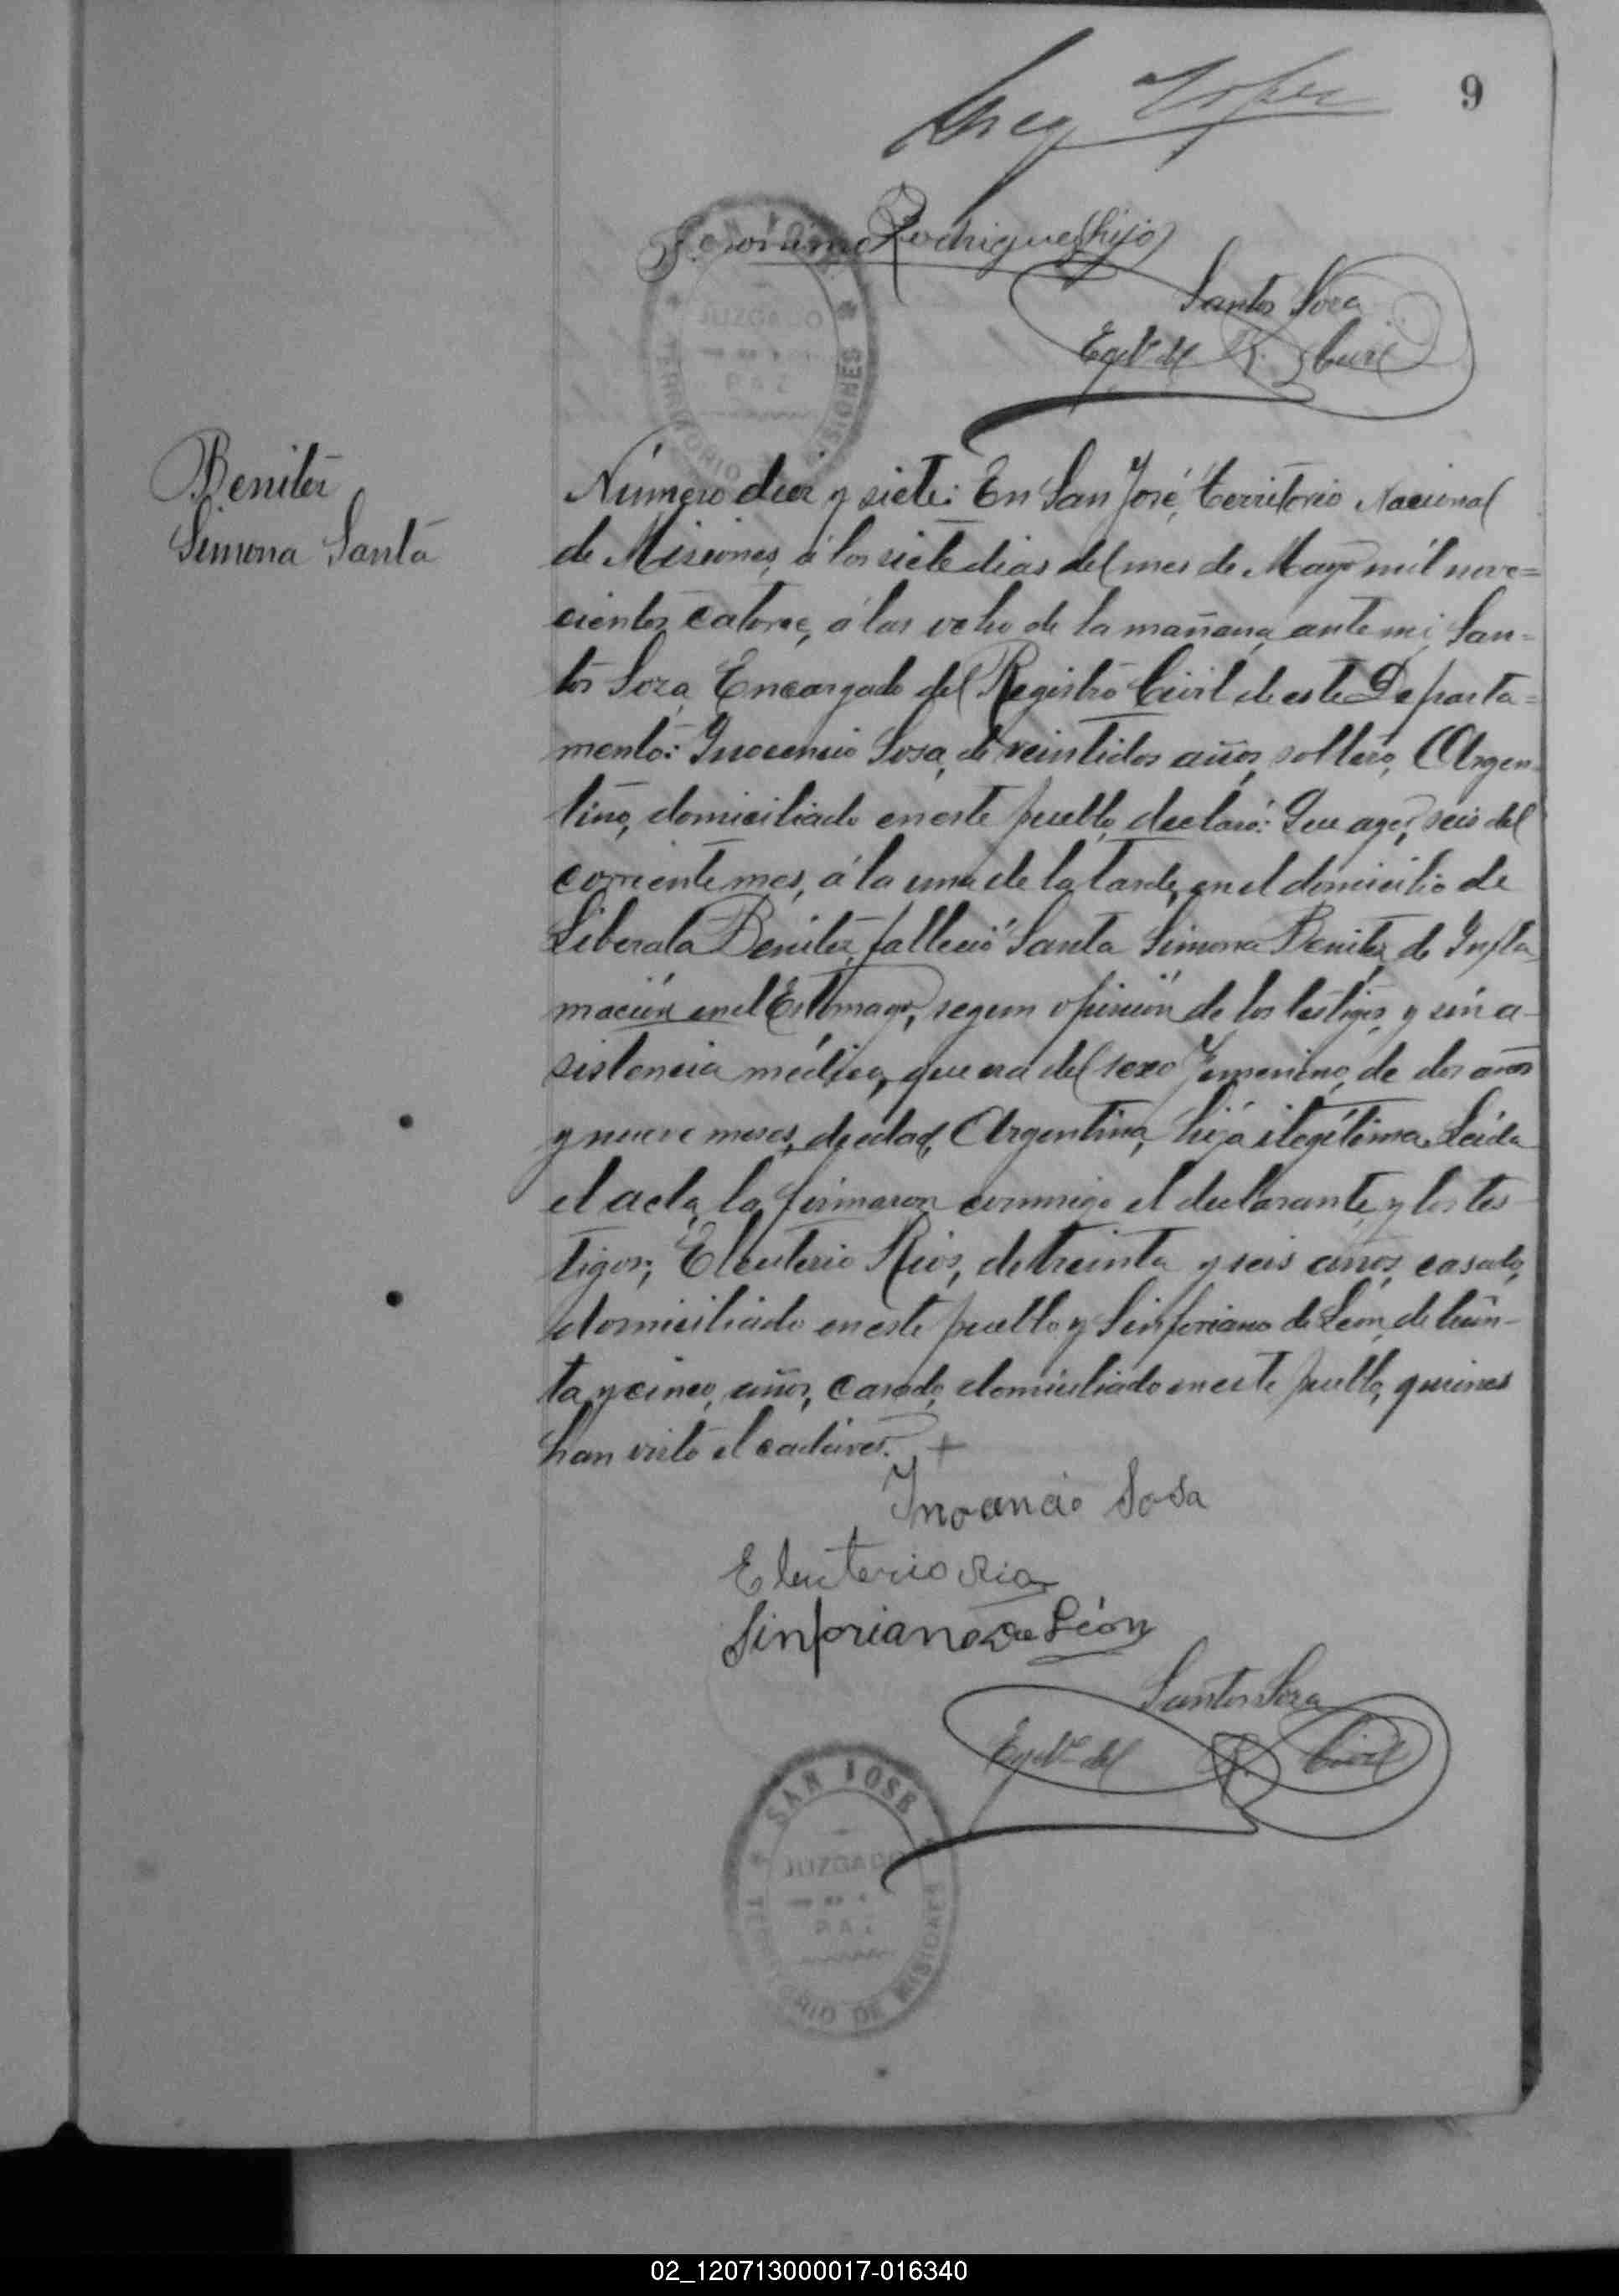 9
Lopez
Geronimo Rodriguez (hijo)
SAN JOSE
JUZGADO
PAZ
TERRITORIO MISIONES
Santos Soza
Egdo del R. Civil
Benitez
Simona Santa
Número diez y siete: En San José, territorio Nacional
de Misiones, á los siete dias del mes de Mayo mil nove=
cientos catorce, á las ocho de la mañana, ante mi, San=
tos Soza, Encargado del Registro Civil de este Departa=
mento: Inocencio Sosa, de veintidos años, soltero, Argen-
tino, domiciliado en este pueblo, declaró: Que ayer, seis del
corriente mes, á la una de la tarde, en el domicilio de
Liberala Benitez, falleció Santa Simona Benitez, de Infla
mación en el Estomago, segun opinión de los testigos, y sin a-
sistencia médica, que era del sexo femenino, de dos años
y nueve meses, de edad, Argentina, hija ilegítima. Leida
el acta, la firmaron conmigo el declarante, y los tes-
tigos; Eleuterio Rios, de treinta y seis años, casado,
domiciliado en este pueblo y Sinforiano de León, de trein-
ta y cinco, años, casado, domiciliado en este pueblo, quienes
han visto el cadáver.
Inocencio Sosa
Eleuterio Rios
Sinforiano De León
Santos Soza
Egdo del R. Civil
SAN JOSE
JUZGADO
PAZ
TERRITORIO DE MISIONES
02_120713000017-016340